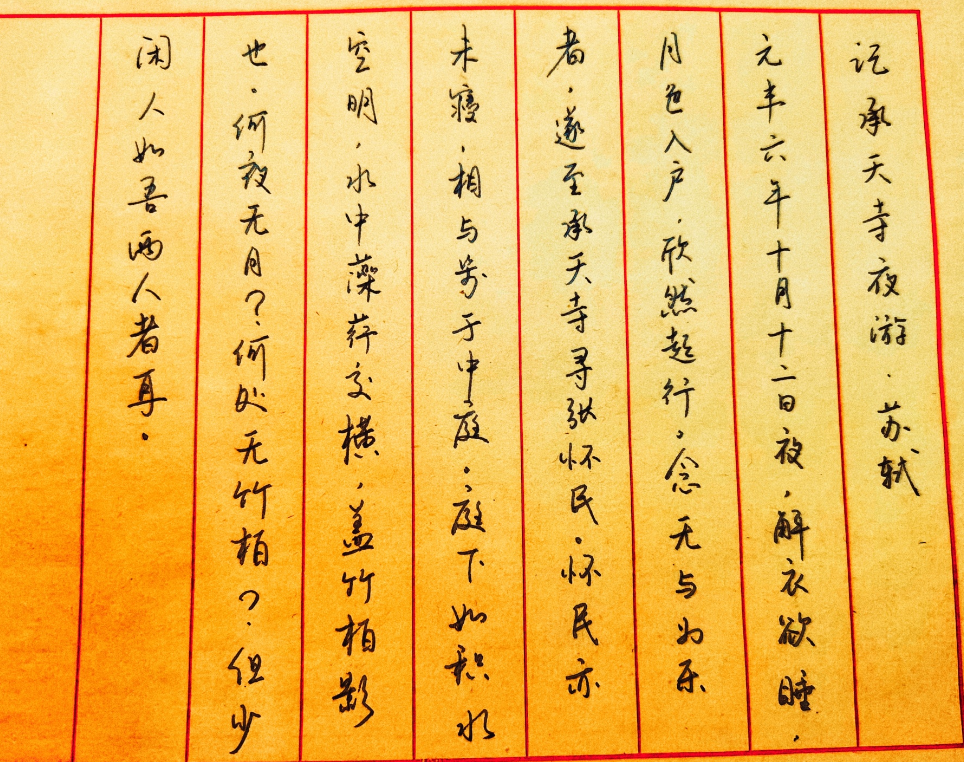 记承天寺夜游．苏轼
元丰六年十月十二日夜，解衣欲睡，
月色入户，欣然起行。念无与为乐
者，遂至承天寺寻张怀民。怀民亦
未寝，相与步于中庭。庭下如积水
空明，水中藻荇交横，盖竹柏影
也。何夜无月？何处无竹柏？但少
闲人如吾两人者耳。